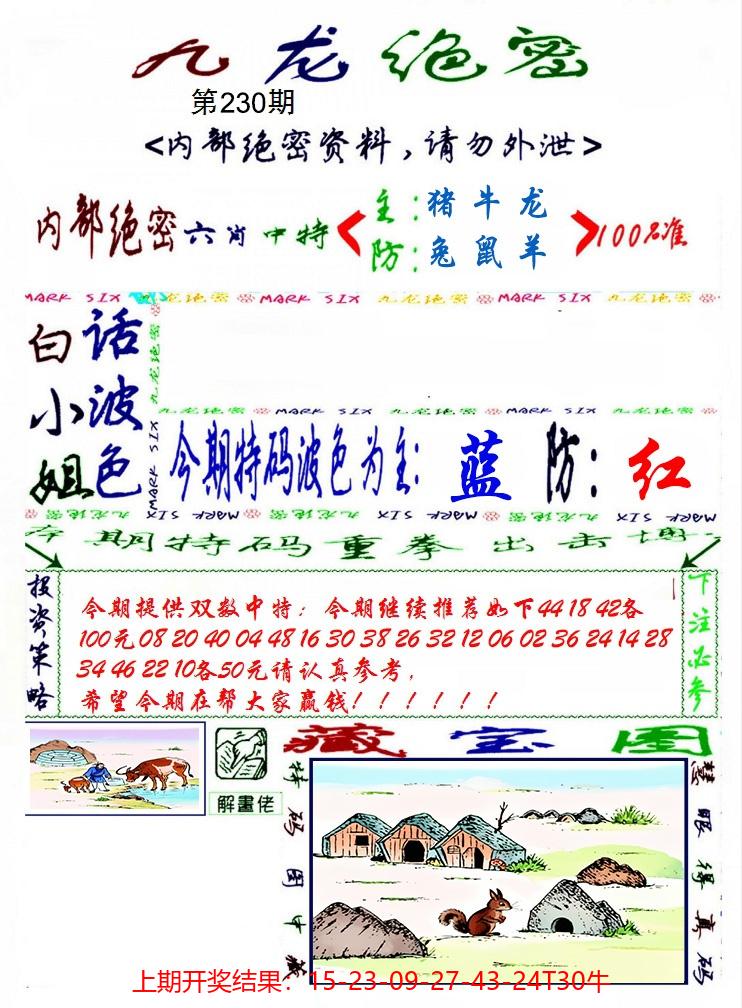 九龙绝密
第230期
<内部绝密资料,请勿外泄>
内部绝密六肖中特
主:猪牛龙
防:兔鼠羊
100%准
MARK SIX 九龙绝密 MARK SIX 九龙绝密 MARK SIX 九龙绝密
白小姐
话波色
九龙绝密 MARK SIX
九龙绝密 MARK SIX 九龙绝密 MARK SIX 九龙绝密
今期特码波色为主:蓝 防:红
MARK SIX 九龙绝密 MARK SIX 九龙绝密 MARK SIX 九龙绝密
本期特码重拳出击博
投资策略
今期提供双数中特:今期继续推荐如下44 18 42各
100元 08 20 40 04 48 16 30 38 26 32 12 06 02 36 24 14 28
34 46 22 10各50元请认真参考,
希望今期在帮大家赢钱!!!!!!
下注必参
解畫佬
藏宝图
特码图中藏
慧眼得真码
上期开奖结果:15-23-09-27-43-24T30牛